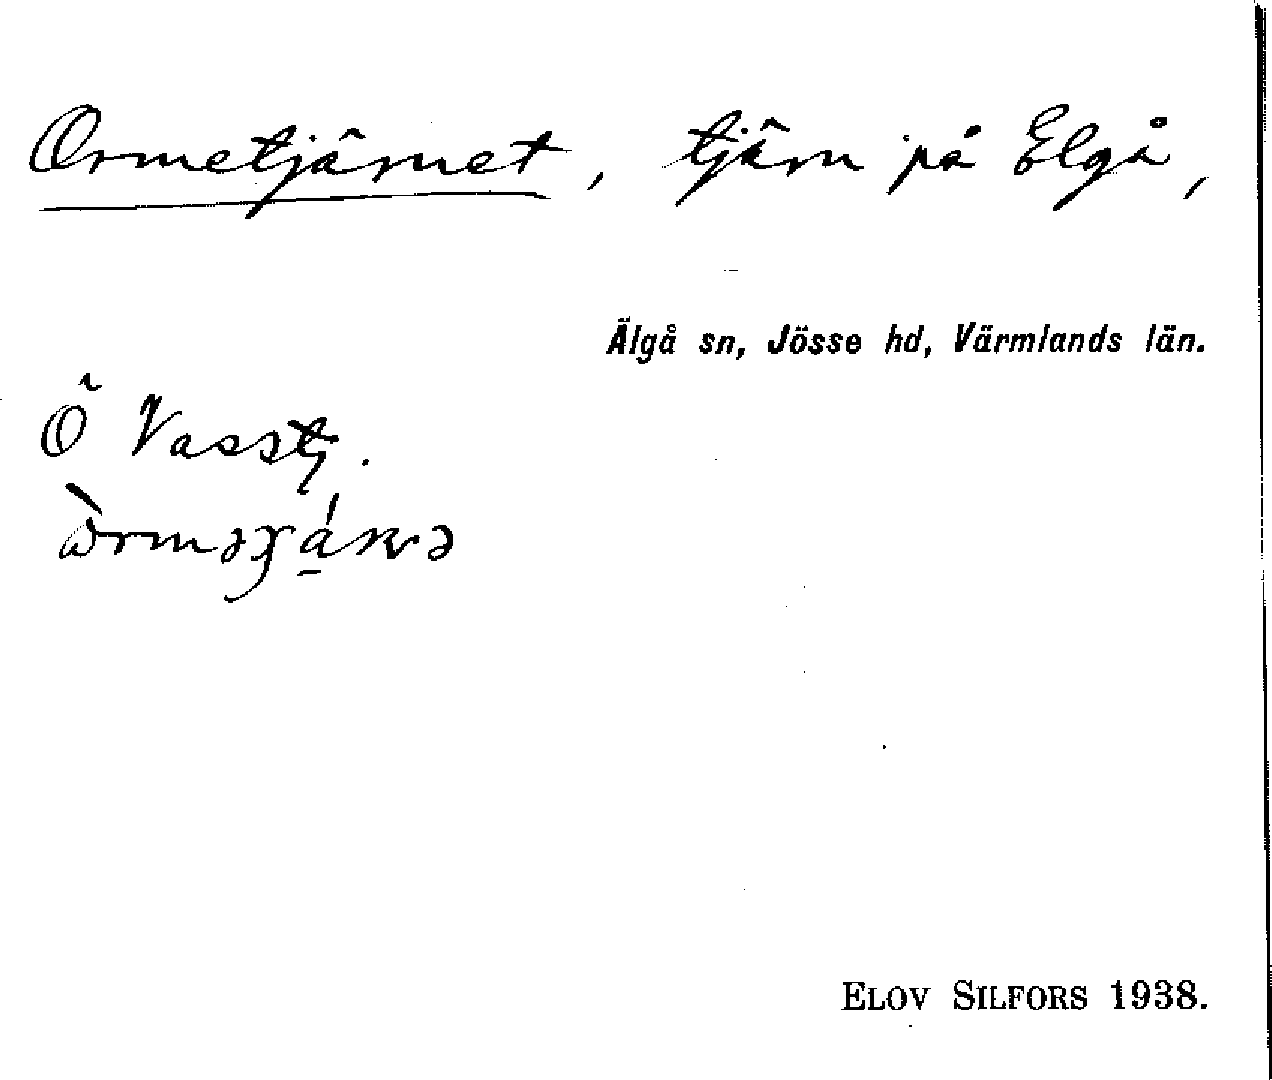 Ormetjärnet, tjärn på Elgå,
Älgå sn, Jösse hd, Värmlands län.
Ö Vasstj.
ELOV SILFORS 1938.